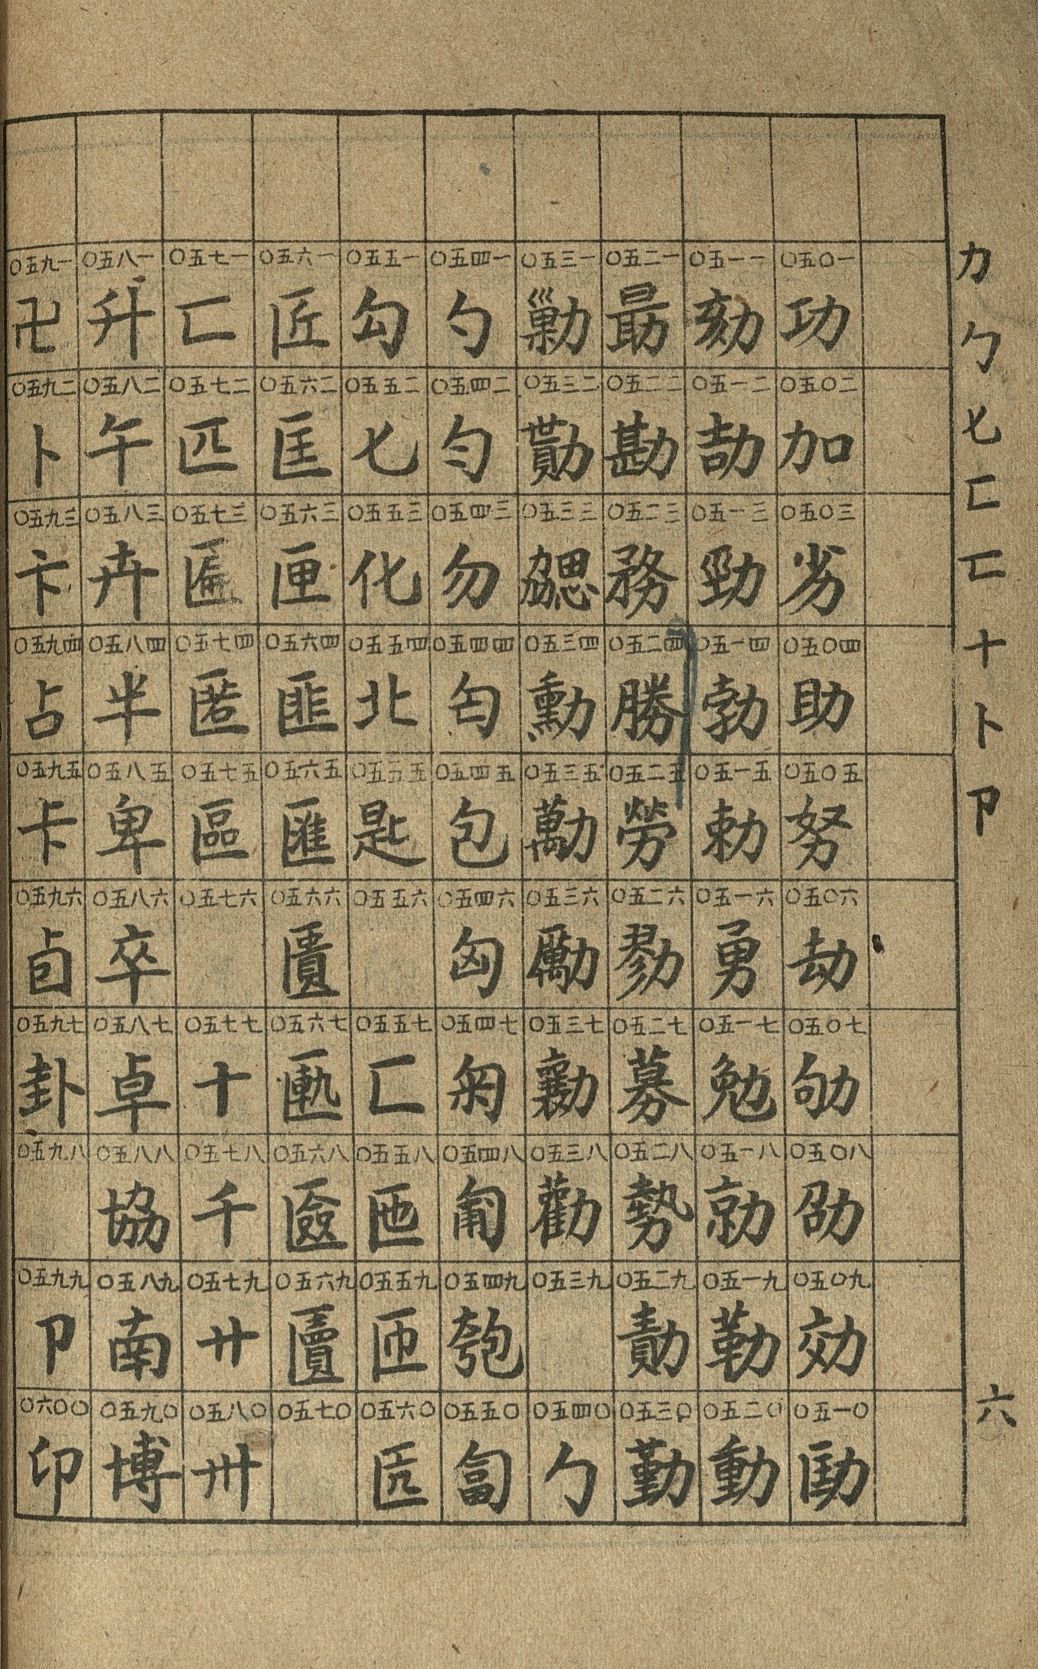 力勹匕匚匸十卜卩
六
〇五〇一 功
〇五〇二 加
〇五〇三 劣
〇五〇四 助
〇五〇五 努
〇五〇六 劫
〇五〇七 劬
〇五〇八 劭
〇五〇九 効
〇五一〇 劻
〇五一一 劾
〇五一二 劼
〇五一三 勁
〇五一四 勃
〇五一五 勅
〇五一六 勇
〇五一七 勉
〇五一八 勍
〇五一九 勒
〇五二〇 動
〇五二一 勖
〇五二二 勘
〇五二三 務
〇五二四 勝
〇五二五 勞
〇五二六 勠
〇五二七 募
〇五二八 勢
〇五二九 勣
〇五三〇 勤
〇五三一 勦
〇五三二 勩
〇五三三 勰
〇五三四 勳
〇五三五 勱
〇五三六 勵
〇五三七 勷
〇五三八 勸
〇五三九
〇五四〇 勹
〇五四一 勺
〇五四二 勻
〇五四三 勿
〇五四四 匄
〇五四五 包
〇五四六 匈
〇五四七 匊
〇五四八 匍
〇五四九 匏
〇五五〇 匐
〇五五一 勾
〇五五二 匕
〇五五三 化
〇五五四 北
〇五五五 匙
〇五五六
〇五五七 匚
〇五五八 匜
〇五五九 匝
〇五六〇 匟
〇五六一 匠
〇五六二 匡
〇五六三 匣
〇五六四 匪
〇五六五 匯
〇五六六 匱
〇五六七 匭
〇五六八 匳
〇五六九 匵
〇五七〇
〇五七一 匸
〇五七二 匹
〇五七三 匾
〇五七四 匿
〇五七五 區
〇五七六
〇五七七 十
〇五七八 千
〇五七九 廿
〇五八〇 卅
〇五八一 升
〇五八二 午
〇五八三 卉
〇五八四 半
〇五八五 卑
〇五八六 卒
〇五八七 卓
〇五八八 協
〇五八九 南
〇五九〇 博
〇五九一 卍
〇五九二 卜
〇五九三 卞
〇五九四 占
〇五九五 卡
〇五九六 卣
〇五九七 卦
〇五九八
〇五九九 卩
〇六〇〇 印